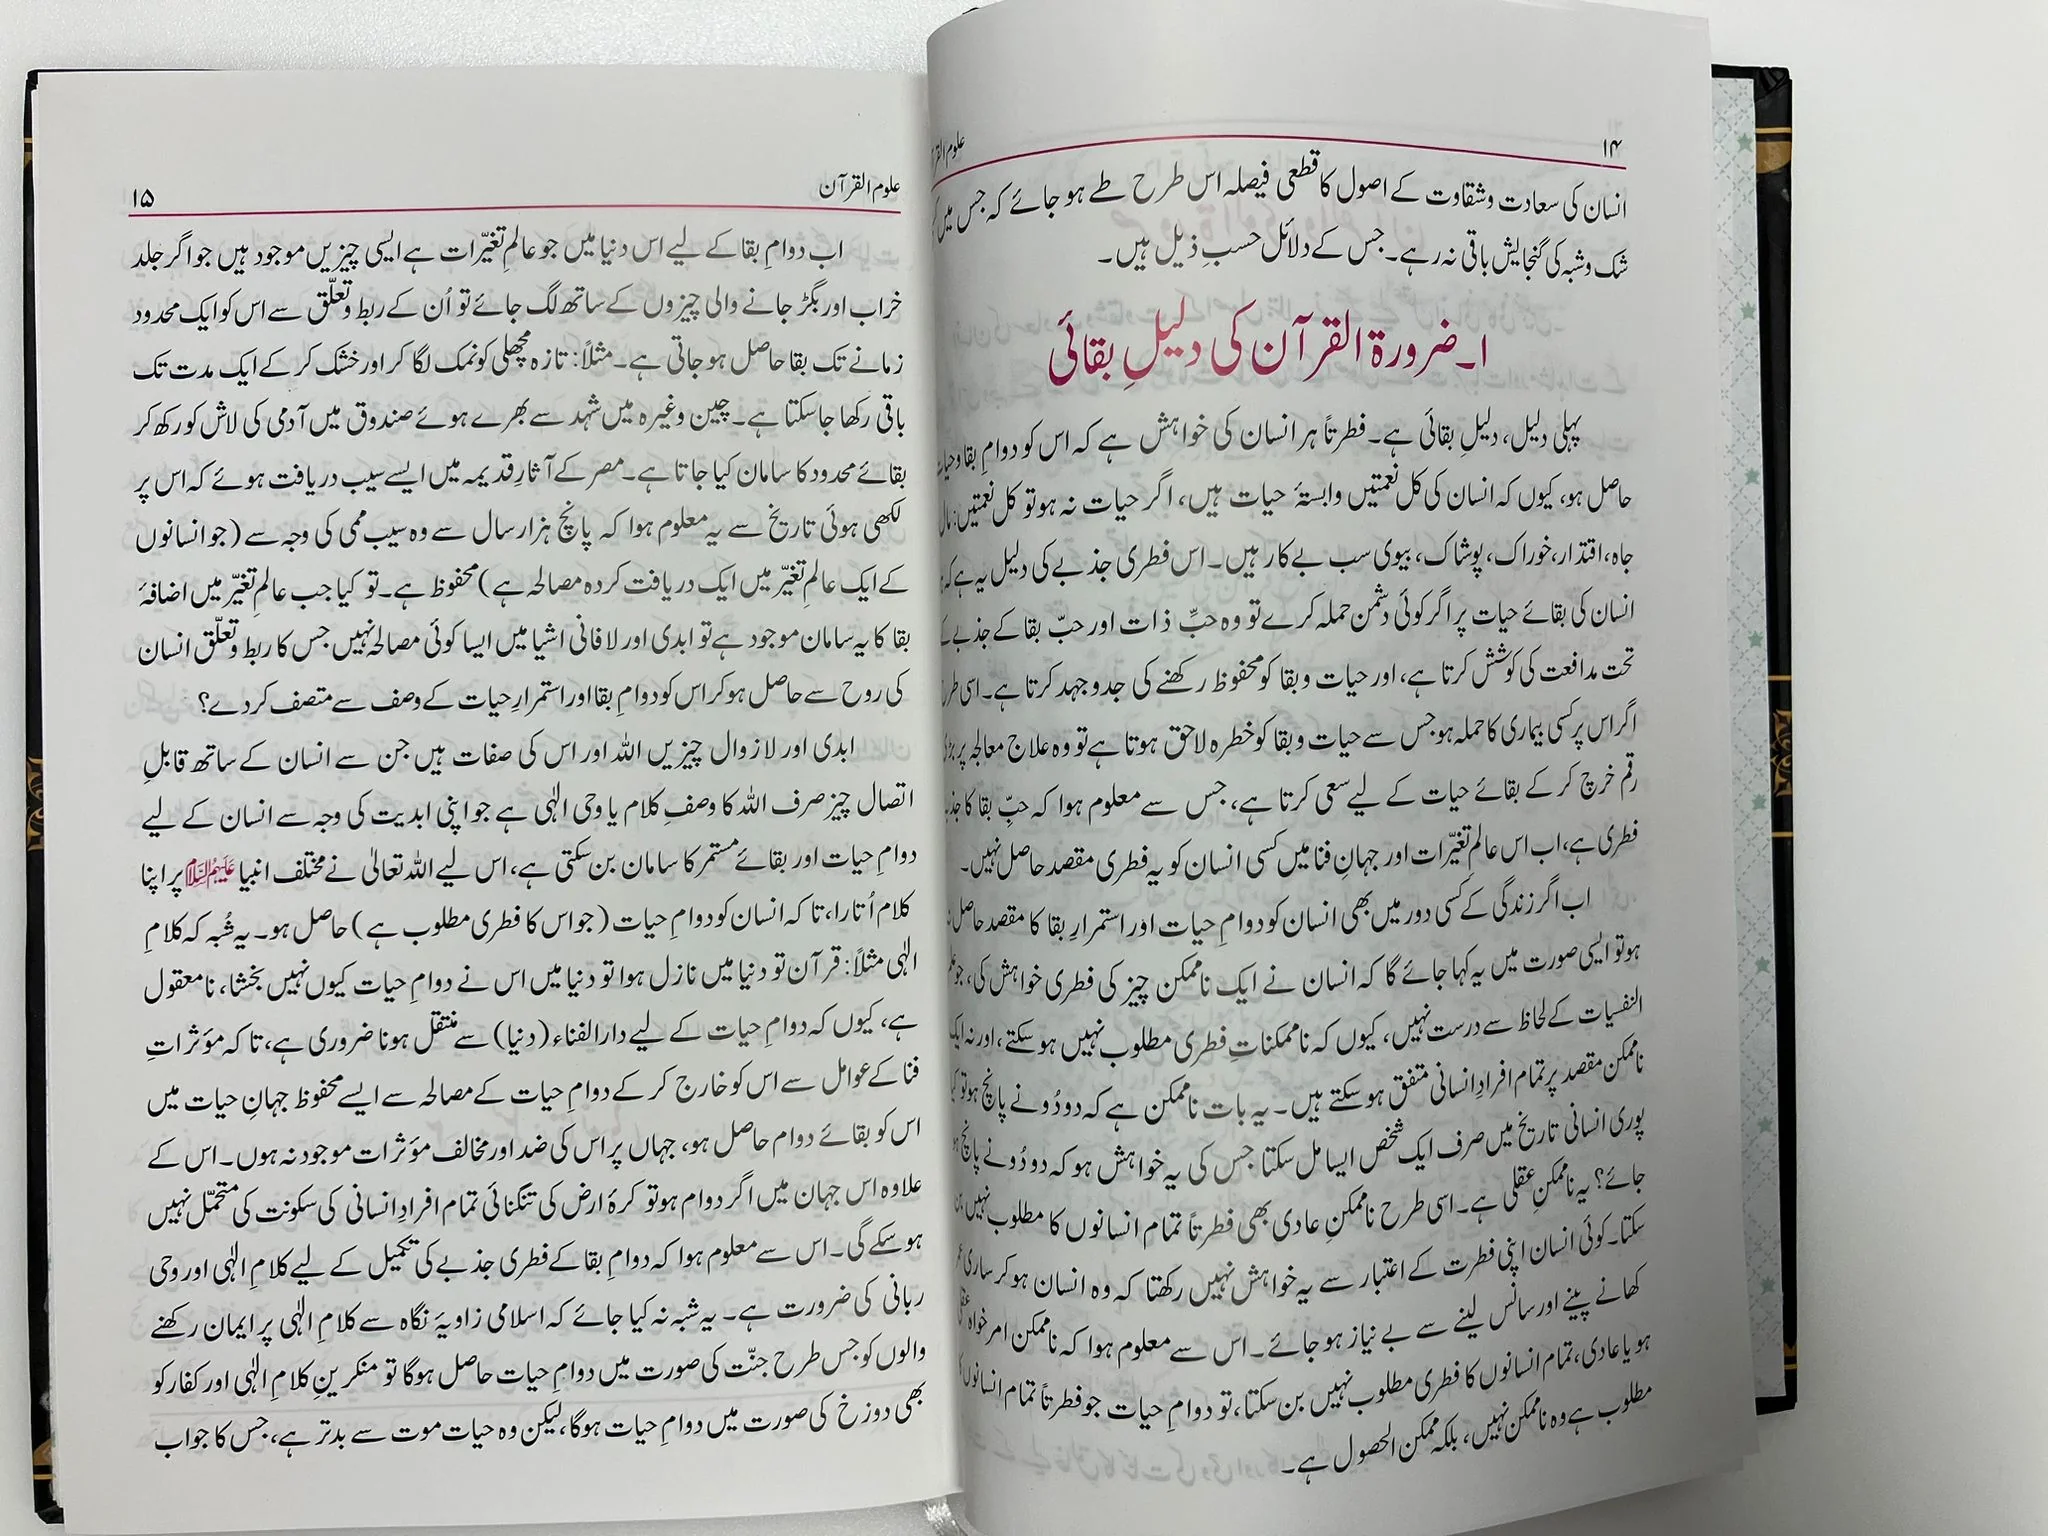 ۱۴
علوم القر
انسان کی سعادت وشقاوت کے اصول کا قطعی فیصلہ اس طرح طے ہو جائے کہ جس میں
شک وشبہ کی گنجایش باقی نہ رہے۔ جس کے دلائل حسبِ ذیل ہیں۔
۱۔ ضرورۃ القرآن کی دلیلِ بقائی
پہلی دلیل، دلیلِ بقائی ہے۔ فطرتاً ہر انسان کی خواہش ہے کہ اس کو دوامِ بقا وحیات
حاصل ہو، کیوں کہ انسان کی کل نعمتیں وابستۂ حیات ہیں، اگر حیات نہ ہو تو کل نعمتیں: مال
جاہ، اقتدار، خوراک، پوشاک، بیوی سب بے کار ہیں۔ اس فطری جذبے کی دلیل یہ ہے کہ
انسان کی بقائے حیات پر اگر کوئی دشمن حملہ کرے تو وہ حبِّ ذات اور حبّ بقا کے جذبے کے
تحت مدافعت کی کوشش کرتا ہے، اور حیات وبقا کو محفوظ رکھنے کی جدوجہد کرتا ہے۔ اسی طرح
اگر اس پر کسی بیماری کا حملہ ہو جس سے حیات وبقا کو خطرہ لاحق ہوتا ہے تو وہ علاج معالجہ پر بڑی
رقم خرچ کر کے بقائے حیات کے لیے سعی کرتا ہے، جس سے معلوم ہوا کہ حبِّ بقا کا جذبہ
فطری ہے، اب اس عالمِ تغیّرات اور جہانِ فنا میں کسی انسان کو یہ فطری مقصد حاصل نہیں۔
اب اگر زندگی کے کسی دور میں بھی انسان کو دوامِ حیات اور استمرارِ بقا کا مقصد حاصل نہ
ہو تو ایسی صورت میں یہ کہا جائے گا کہ انسان نے ایک ناممکن چیز کی فطری خواہش کی، جو علم
النفسیات کے لحاظ سے درست نہیں، کیوں کہ ناممکناتِ فطری مطلوب نہیں ہو سکتے، اور نہ ایک
ناممکن مقصد پر تمام افرادِ انسانی متفق ہو سکتے ہیں۔ یہ بات ناممکن ہے کہ دو دُونے پانچ ہو تو کیا
پوری انسانی تاریخ میں صرف ایک شخص ایسا مل سکتا جس کی یہ خواہش ہو کہ دو دُونے پانچ ہو
جائے؟ یہ ناممکنِ عقلی ہے۔ اسی طرح ناممکنِ عادی بھی فطرتاً تمام انسانوں کا مطلوب نہیں بن
سکتا۔ کوئی انسان اپنی فطرت کے اعتبار سے یہ خواہش نہیں رکھتا کہ وہ انسان ہو کر ساری عمر
کھانے پینے اور سانس لینے سے بے نیاز ہو جائے۔ اس سے معلوم ہوا کہ ناممکن امر خواہ عقلی
ہو یا عادی، تمام انسانوں کا فطری مطلوب نہیں بن سکتا، تو دوامِ حیات جو فطرتاً تمام انسانوں کا
مطلوب ہے وہ ناممکن نہیں، بلکہ ممکن الحصول ہے۔
علوم القرآن
۱۵
اب دوامِ بقا کے لیے اس دنیا میں جو عالمِ تغیّرات ہے ایسی چیزیں موجود ہیں جو اگر جلد
خراب اور بگڑ جانے والی چیزوں کے ساتھ لگ جائے تو اُن کے ربط وتعلّق سے اس کو ایک محدود
زمانے تک بقا حاصل ہو جاتی ہے۔ مثلاً: تازہ مچھلی کو نمک لگا کر اور خشک کر کے ایک مدت تک
باقی رکھا جا سکتا ہے۔ چین وغیرہ میں شہد سے بھرے ہوئے صندوق میں آدمی کی لاش کو رکھ کر
بقائے محدود کا سامان کیا جاتا ہے۔ مصر کے آثارِ قدیمہ میں ایسے سیب دریافت ہوئے کہ اس پر
لکھی ہوئی تاریخ سے یہ معلوم ہوا کہ پانچ ہزار سال سے وہ سیب ممی کی وجہ سے (جو انسانوں
کے ایک عالمِ تغیّر میں ایک دریافت کردہ مصالحہ ہے) محفوظ ہے۔ تو کیا جب عالمِ تغیّر میں اضافۂ
بقا کا یہ سامان موجود ہے تو ابدی اور لافانی اشیا میں ایسا کوئی مصالحہ نہیں جس کا ربط وتعلّق انسان
کی روح سے حاصل ہو کر اس کو دوامِ بقا اور استمرارِ حیات کے وصف سے متصف کر دے؟
ابدی اور لازوال چیزیں اللہ اور اس کی صفات ہیں جن سے انسان کے ساتھ قابلِ
اتصال چیز صرف اللہ کا وصفِ کلام یا وحی الٰہی ہے جو اپنی ابدیت کی وجہ سے انسان کے لیے
دوامِ حیات اور بقائے مستمر کا سامان بن سکتی ہے، اس لیے اللہ تعالیٰ نے مختلف انبیا عَلَيْهِمُ السَّلَام پر اپنا
کلام اُتارا، تاکہ انسان کو دوامِ حیات (جو اس کا فطری مطلوب ہے) حاصل ہو۔ یہ شُبہ کہ کلامِ
الٰہی مثلاً: قرآن تو دنیا میں نازل ہوا تو دنیا میں اس نے دوامِ حیات کیوں نہیں بخشا، نامعقول
ہے، کیوں کہ دوامِ حیات کے لیے دارالفناء (دنیا) سے منتقل ہونا ضروری ہے، تاکہ مؤثراتِ
فنا کے عوامل سے اس کو خارج کر کے دوامِ حیات کے مصالحہ سے ایسے محفوظ جہانِ حیات میں
اس کو بقائے دوام حاصل ہو، جہاں پر اس کی ضد اور مخالف مؤثرات موجود نہ ہوں۔ اس کے
علاوہ اس جہان میں اگر دوام ہو تو کرۂ ارض کی تنگنائی تمام افرادِ انسانی کی سکونت کی متحمّل نہیں
ہو سکے گی۔ اس سے معلوم ہوا کہ دوامِ بقا کے فطری جذبے کی تکمیل کے لیے کلامِ الٰہی اور وحی
ربانی کی ضرورت ہے۔ یہ شبہ نہ کیا جائے کہ اسلامی زاویۂ نگاہ سے کلامِ الٰہی پر ایمان رکھنے
والوں کو جس طرح جنّت کی صورت میں دوامِ حیات حاصل ہوگا تو منکرینِ کلامِ الٰہی اور کفار کو
بھی دوزخ کی صورت میں دوامِ حیات ہوگا، لیکن وہ حیات موت سے بدتر ہے، جس کا جواب